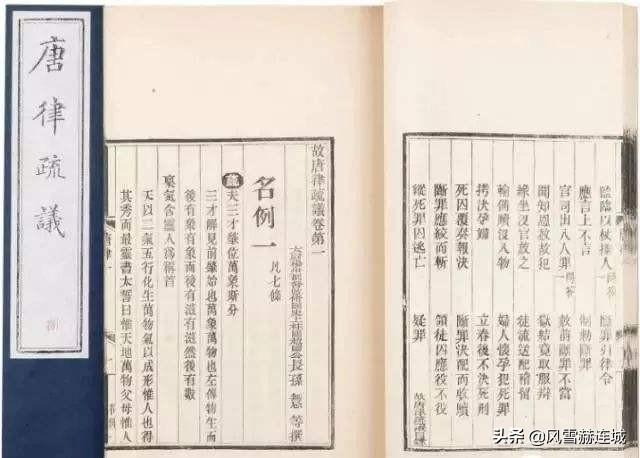 唐律疏議
監臨以杖捶人 斷罪引律令
應言上不言 制勅斷罪
官司出入人罪 問答 赦前斷罪不當
聞知恩赦故犯 獄結竟取服辯
緣坐沒官放之 徒流送配稽留
輸備贖沒入物 婦人懷孕犯死罪
拷決孕婦 立春後不決死刑
死囚覆奏報決 斷罪決配而收贖
斷罪應絞而斬 領徒囚應役不役
縱死罪囚逃亡 疑罪
故唐律疏議卷第一
長孫 等撰
名例一 凡七條
疏夫三才肇位萬象斯分
三才解見前肇始也萬象萬物也左傳物生而
後有象有象而後有滋有滋然後有數
稟氣含靈人為稱首
天以二氣五行化生萬物氣以成形惟人也得
其秀而最靈書太誓曰惟天地萬物父母惟人
唐律一
头条 @风雪赫连城